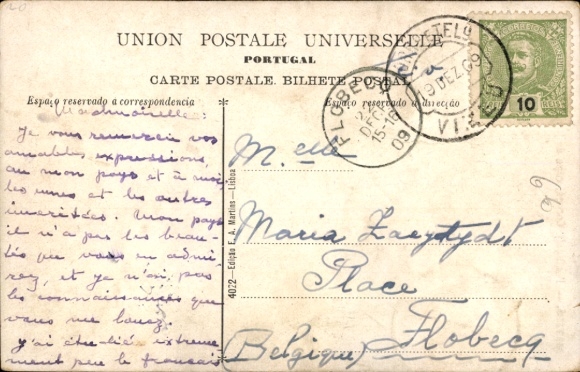 UNION POSTALE UNIVERSELLE
PORTUGAL
CARTE POSTALE. BILHETE POSTAL
Espaço reservado a correspondencia
Espaço reservado a direcção
Mademoiselle:
Je vous remercier vos
amables expressions,
au mon pays et à moi,
les unes et les autres
imeritées. Mon pays
il n'a pas les beau-
tés que vous en admi
rez, et je n'ai pas
les connaissances que
vous me louez.
J'ai étudié extreme
ment peu le français
4022 - Edição F. A. Martins - Lisboa
M.elle
Maria
Place
Flobecq
(Belgique)
FLOBECQ
22
DEC
15-16
09
9 DEZ 09
10